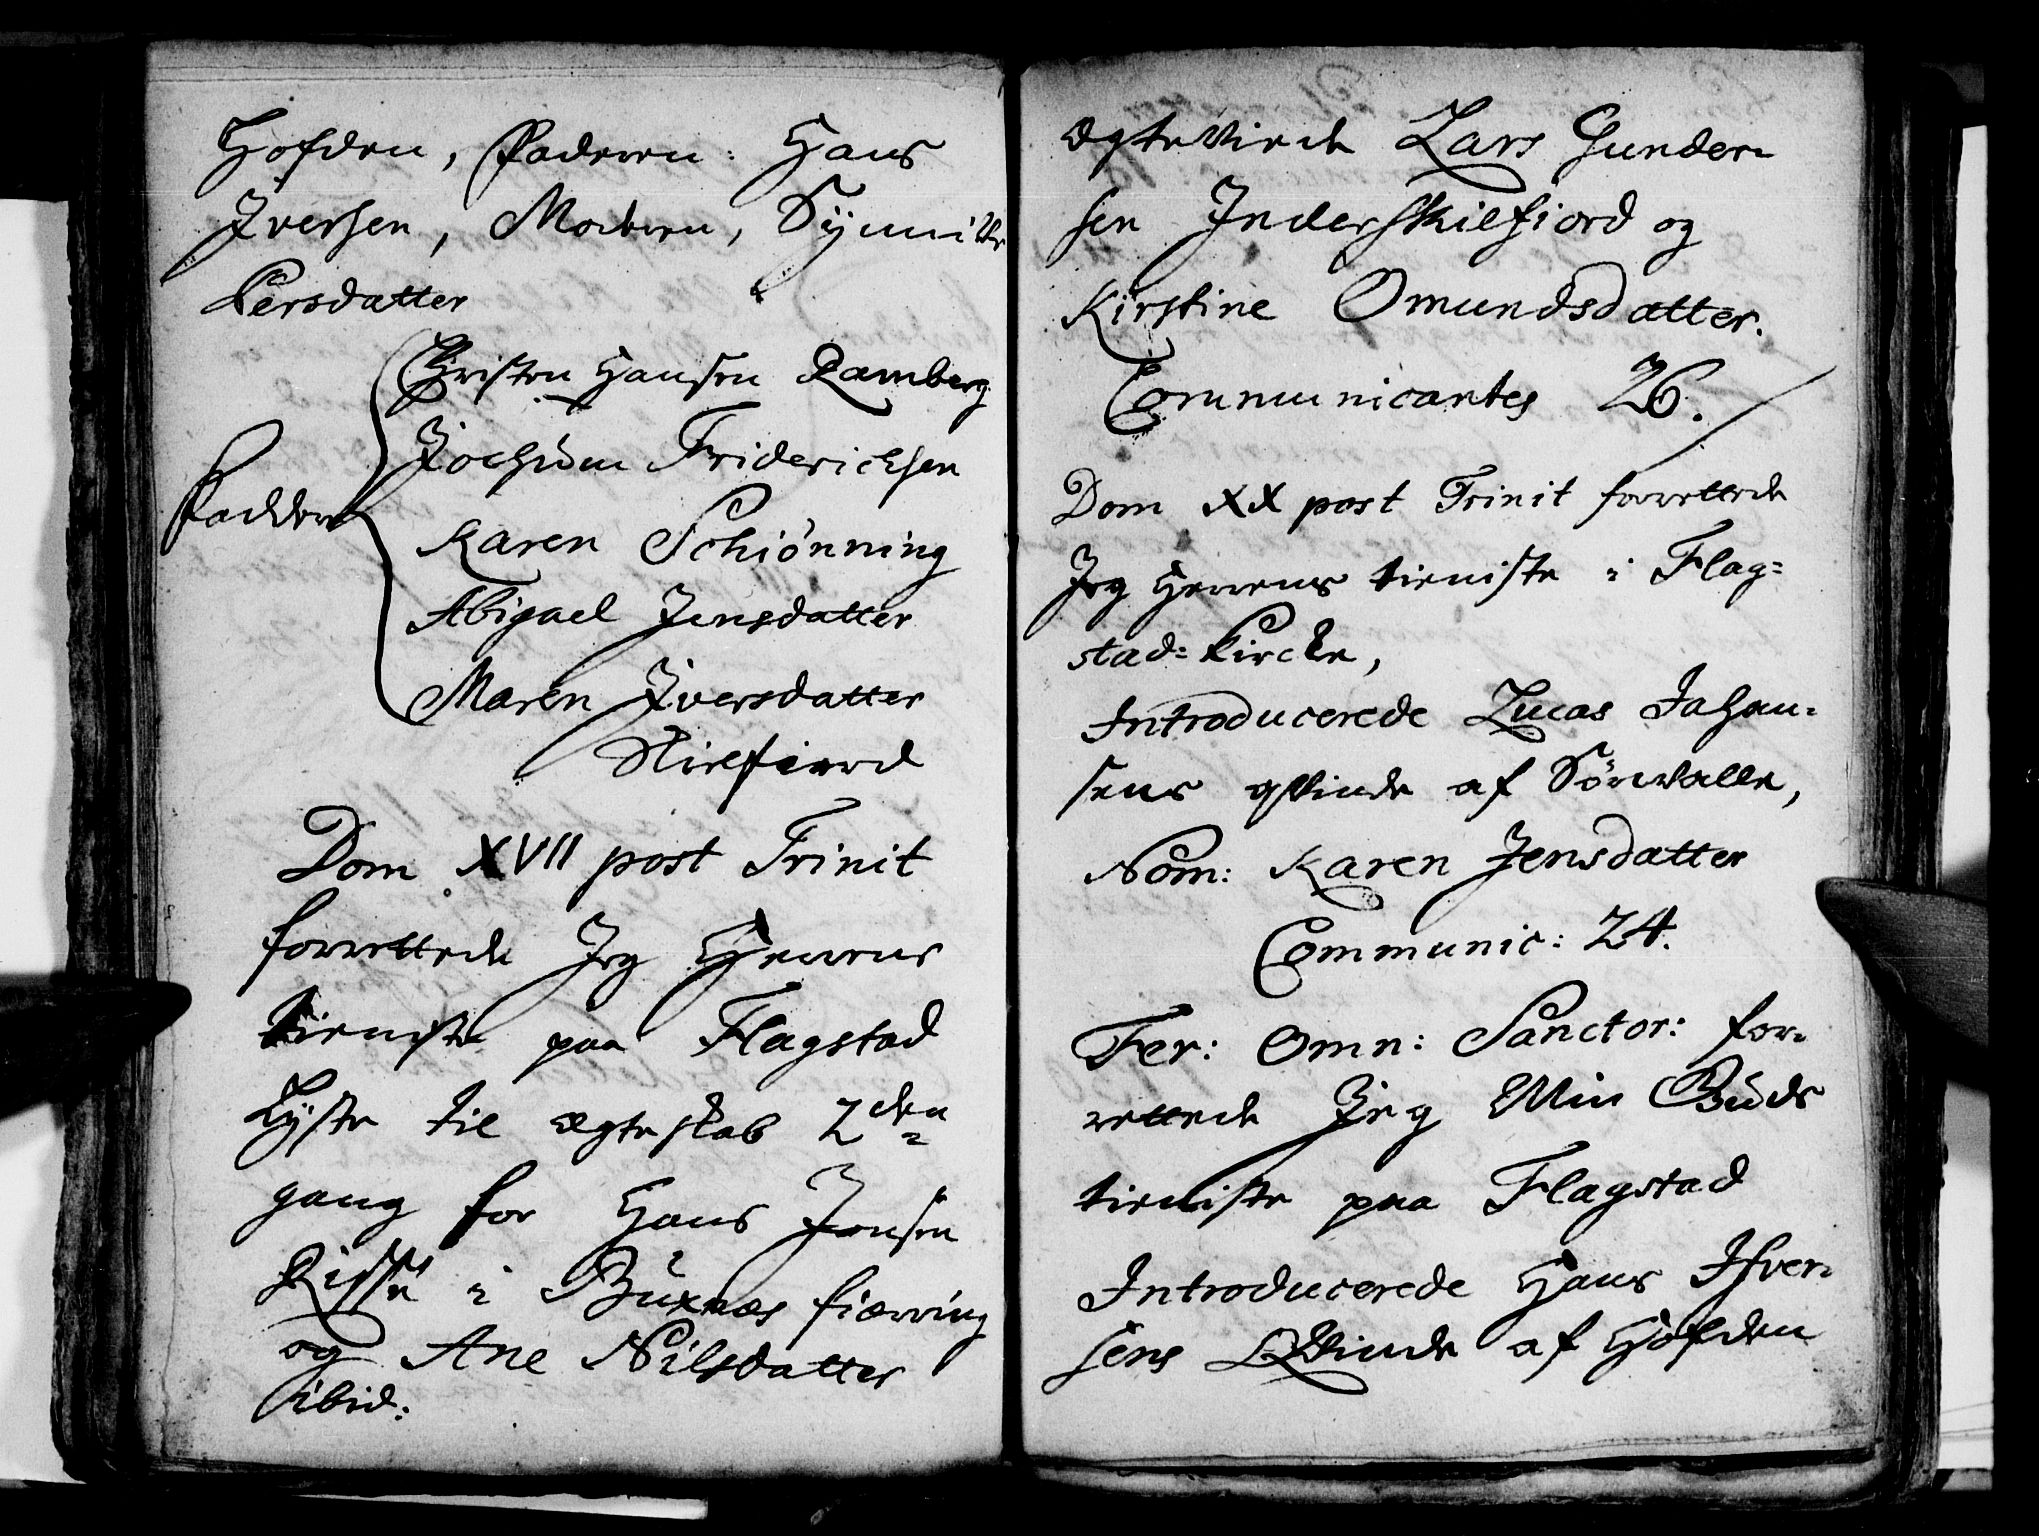 Hofden, Faderen: Hans
Iversen, Moderen, Synnive
Persdatter
Christen Hansen Ramberg
Jochum Friderichsen
Fadder
Karen Schiønning
Abigael Jensdatter
Maren Iversdatter
Skielfiord
Dom XVII post Trinit
forrettede Jeg Herrens
tieniste paa Flagstad
Lyste til ægteskab 2den
gang for Hans Jensen
Risse i Buxnæs fierring
og Ane Nilsdatter
ibid:
ægteviede Lars Gunder-
sen Inderskielfiord og
Kirstine Omundsdatter.
Communicantes 26.
Dom XX post Trinit forrettede
Jeg Herrens tieniste i Flag=
stad= Kircke,
Introducerede Lucas Johan=
sens qvinde af Sørwalle,
Nom: Karen Jensdatter
Communic: 24.
Fer: Omn: Sanctor: for-
rettede Jeg Min Guds
tieniste paa Flagstad
Introducerede Hans Ifver-
sens Qvinde af Hofden